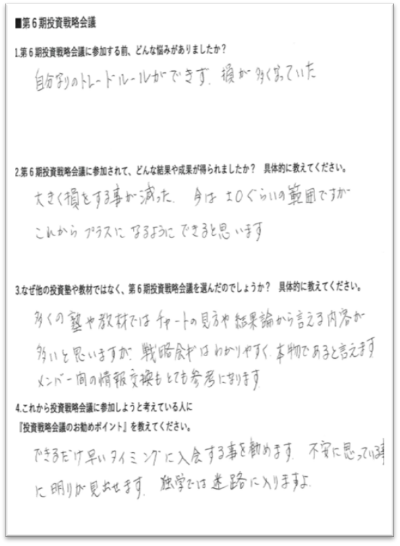 ■第6期投資戦略会議
1.第6期投資戦略会議に参加する前、どんな悩みがありましたか？
自分なりのトレードルールができず、損が多くなっていた
2.第6期投資戦略会議に参加されて、どんな結果や成果が得られましたか？ 具体的に教えてください。
大きく損をする事が減った、今は±0ぐらいの範囲ですが
これからプラスになるようにできると思います
3.なぜ他の投資塾や教材ではなく、第6期投資戦略会議を選んだのでしょうか？ 具体的に教えてください。
多くの塾や教材ではチャートの見方や結果論から言える内容が
多いと思いますが、戦略会議はわかりやすく、本物であると言えます
メンバー間の情報交換もとても参考になります
4.これから投資戦略会議に参加しようと考えている人に
『投資戦略会議のお勧めポイント』を教えてください。
できるだけ早いタイミングに入会する事を勧めます、不安に思っている事
に明りが見出せます、独学では迷路に入りますよ